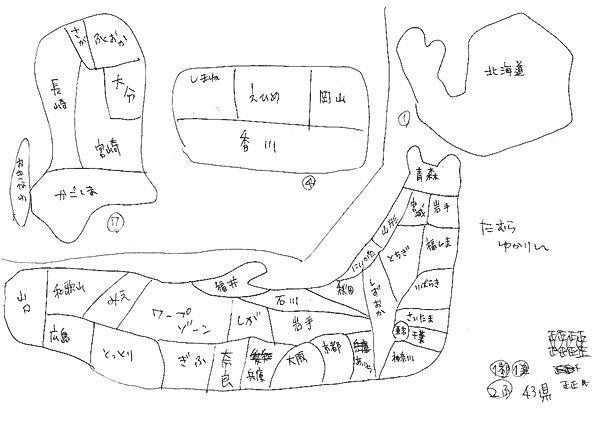 さが
ふくおか
長崎
大分
宮崎
かごしま
おきなわ
⑰
しまね
えひめ
岡山
香川
④
北海道
①
青森
宮城
岩手
山形
福しま
にいがた
とちぎ
秋田
しずおか
いばらき
さいたま
東京
千葉
神奈川
たむら
ゆかりん
山口
和歌山
みえ
ワープ
ゾーン
福井
石川
しが
岩手
広島
とっとり
ぎふ
奈良
兵庫
大阪
京都
あいち
1都 1道
2ふ 43県
正正正正
正正正正
正正